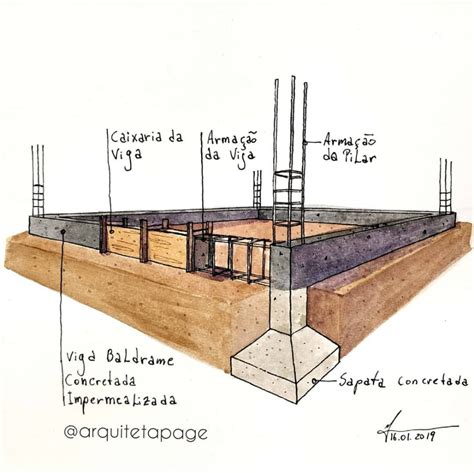 Caixaria da
Viga
Armação
da Viga
Armação
do Pilar
Viga Baldrame
Concretada
Impermealizada
Sapata Concretada
@arquitetapage
16.01.2019